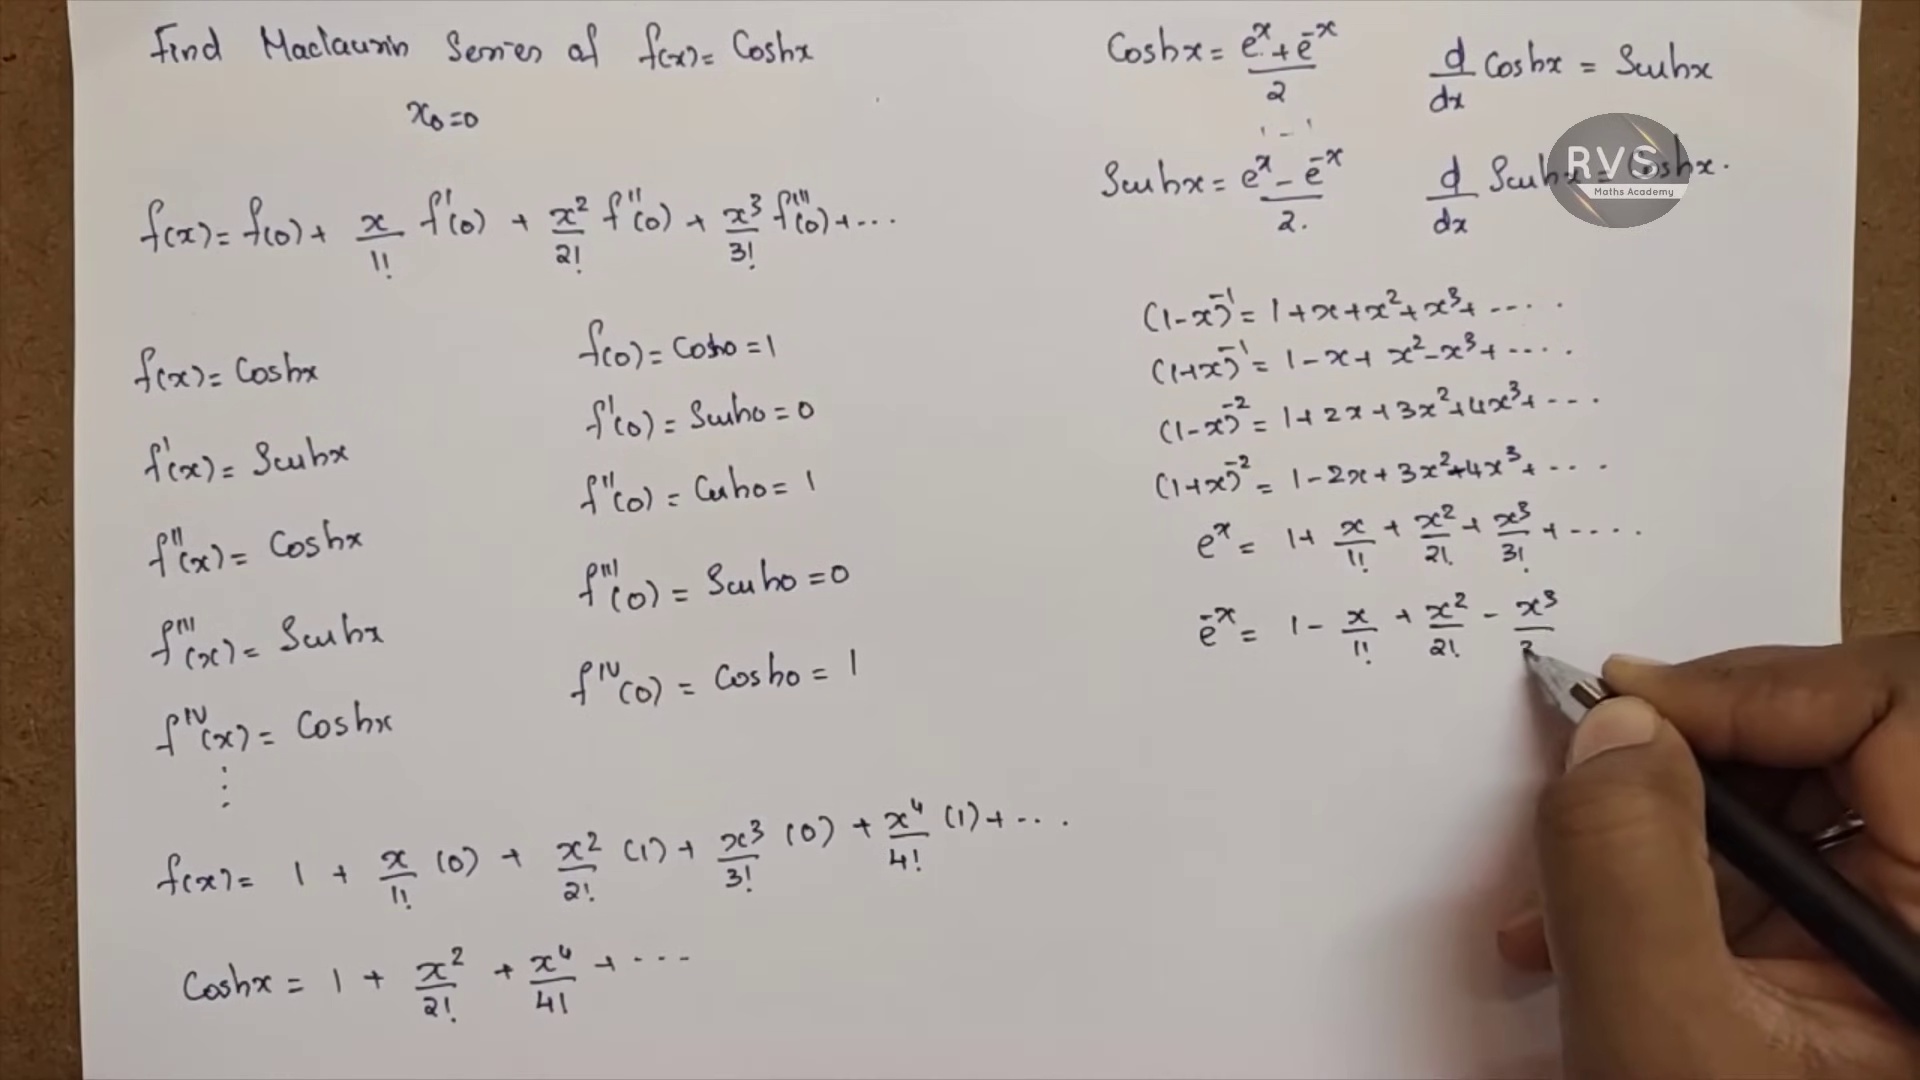 Find Maclaurin Series of f(x) = Coshx
x₀=0
f(x) = f(0) + x/1! f'(0) + x²/2! f''(0) + x³/3! f'''(0) + ...
f(x) = Coshx
f(0) = Cosh0 = 1
f'(x) = Sinhx
f'(0) = Sinh0 = 0
f''(x) = Coshx
f''(0) = Cosh0 = 1
f'''(x) = Sinhx
f'''(0) = Sinh0 = 0
f^IV(x) = Coshx
f^IV(0) = Cosh0 = 1
⋮
f(x) = 1 + x/1! (0) + x²/2! (1) + x³/3! (0) + x⁴/4! (1) + ...
Coshx = 1 + x²/2! + x⁴/4! + ...
Coshx = (e^x + e^-x)/2
d/dx Coshx = Sinhx
Sinhx = (e^x - e^-x)/2.
d/dx Sinhx = Coshx.
RVS
Maths Academy
(1-x)^-1 = 1+x+x²+x³+ .....
(1+x)^-1 = 1-x+x²-x³+ .....
(1-x)^-2 = 1+2x+3x²+4x³+ ....
(1+x)^-2 = 1-2x+3x²-4x³+ ....
e^x = 1+ x/1! + x²/2! + x³/3! + .....
e^-x = 1 - x/1! + x²/2! - x³/3